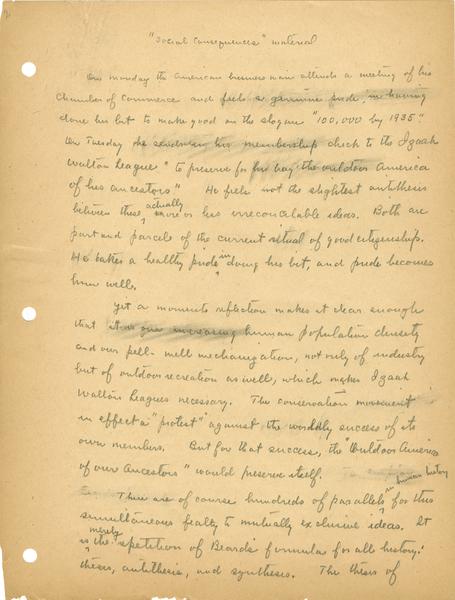 "Social Consequences" material
On Monday the American business man attends a meeting of his
Chamber of Commerce and feels a genuine pride in having
done his bit to make good on the slogan "100,000 by 1935."
On Tuesday he sends his membership check to the Izaak
Walton League "to preserve for his boy the outdoor America
of his ancestors" He feels not the slightest antithesis
between these actually more or less irreconcilable ideas. Both are
part and parcel of the current ritual of good citizenship.
He takes a healthy pride in doing his bit, and pride becomes
him well.
Yet a moments reflection makes it clear enough
that it is our increasing human population density
and our pell-mell mechanization, not only of industry
but of outdoor recreation as well, which makes Izaak
Walton Leagues necessary. The conservation movement
in effect a "protest" against the worldly success of its
own members. But for that success, the "Outdoor America
of our Ancestors" would preserve itself.
There are of course hundreds of parallels in human history for this
simultaneous fealty to mutually exclusive ideas. It
is merely the repetition of Beard's formulas for all history:
thesis, antithesis, and synthesis. The thesis of